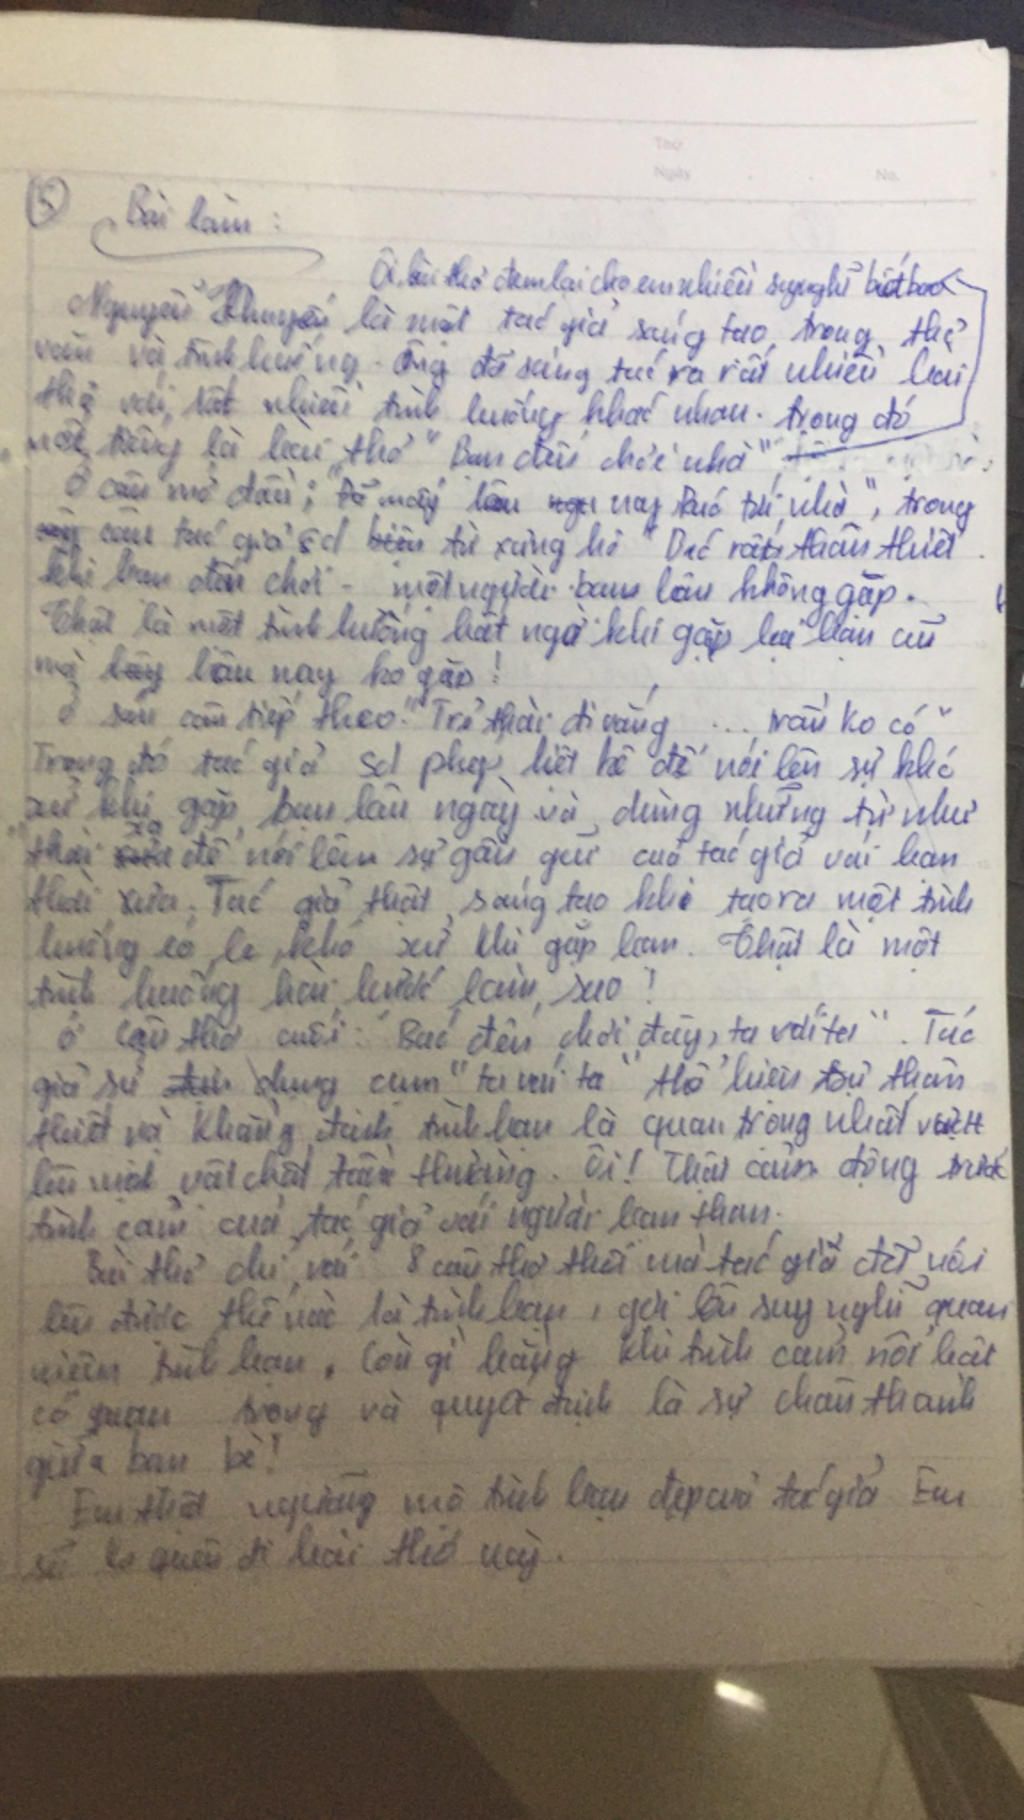 Thứ
Ngày No.
5 Bài làm :
Ôi, bài thơ đem lại cho em nhiều suy nghĩ biết bao
Nguyễn Khuyến là một tác giả sáng tạo trong thơ
văn và tình huống. Ông đã sáng tác ra rất nhiều bài
thơ với rất nhiều tình huống khác nhau. trong đó
nổi tiếng là bài thơ "Bạn đến chơi nhà"
Ở câu mở đầu: "Đã mấy lâu nay bác tới nhà", trong
câu tác giả sd từ xưng hô "Bác rất thân thiết
khi bạn đến chơi - một người bạn lâu không gặp.
Thật là một tình huống bất ngờ khi gặp lại bạn cũ
mà lâu nay ko gặp!
Ở sáu câu tiếp theo: "Trẻ thời đi vắng ... trầu ko có"
Trong đó tác giả sd phép liệt kê để nói lên sự khó
xử khi gặp bạn lâu ngày và dùng những từ như
thời xa để nói lên sự gần gũi của tác giả với bạn
thời xưa. Tác giả thật sáng tạo khi tạo ra một tình
huống éo le, khó xử khi gặp bạn. Thật là một
tình huống hài hước làm sao!
Ở câu thơ cuối: "Bác đến chơi đây, ta với ta". Tác
giả sử dụng cụm "ta với ta" thể hiện sự thân
thiết và khẳng định tình bạn là quan trọng nhất vượt
lên mọi vật chất tầm thường. Ôi! Thật cảm động trước
tình cảm của tác giả với người bạn thân.
Bài thơ chỉ với 8 câu thơ thôi mà tác giả đã nói
lên được thế nào là tình bạn, gợi lên suy nghĩ quan
niệm tình bạn. Còn gì bằng khi tình cảm nói hết
có quan trọng và quyết định là sự chân thành
giữa bạn bè!
Em thật ngưỡng mộ tình bạn đẹp của tác giả Em
sẽ ko quên đi bài thơ này.